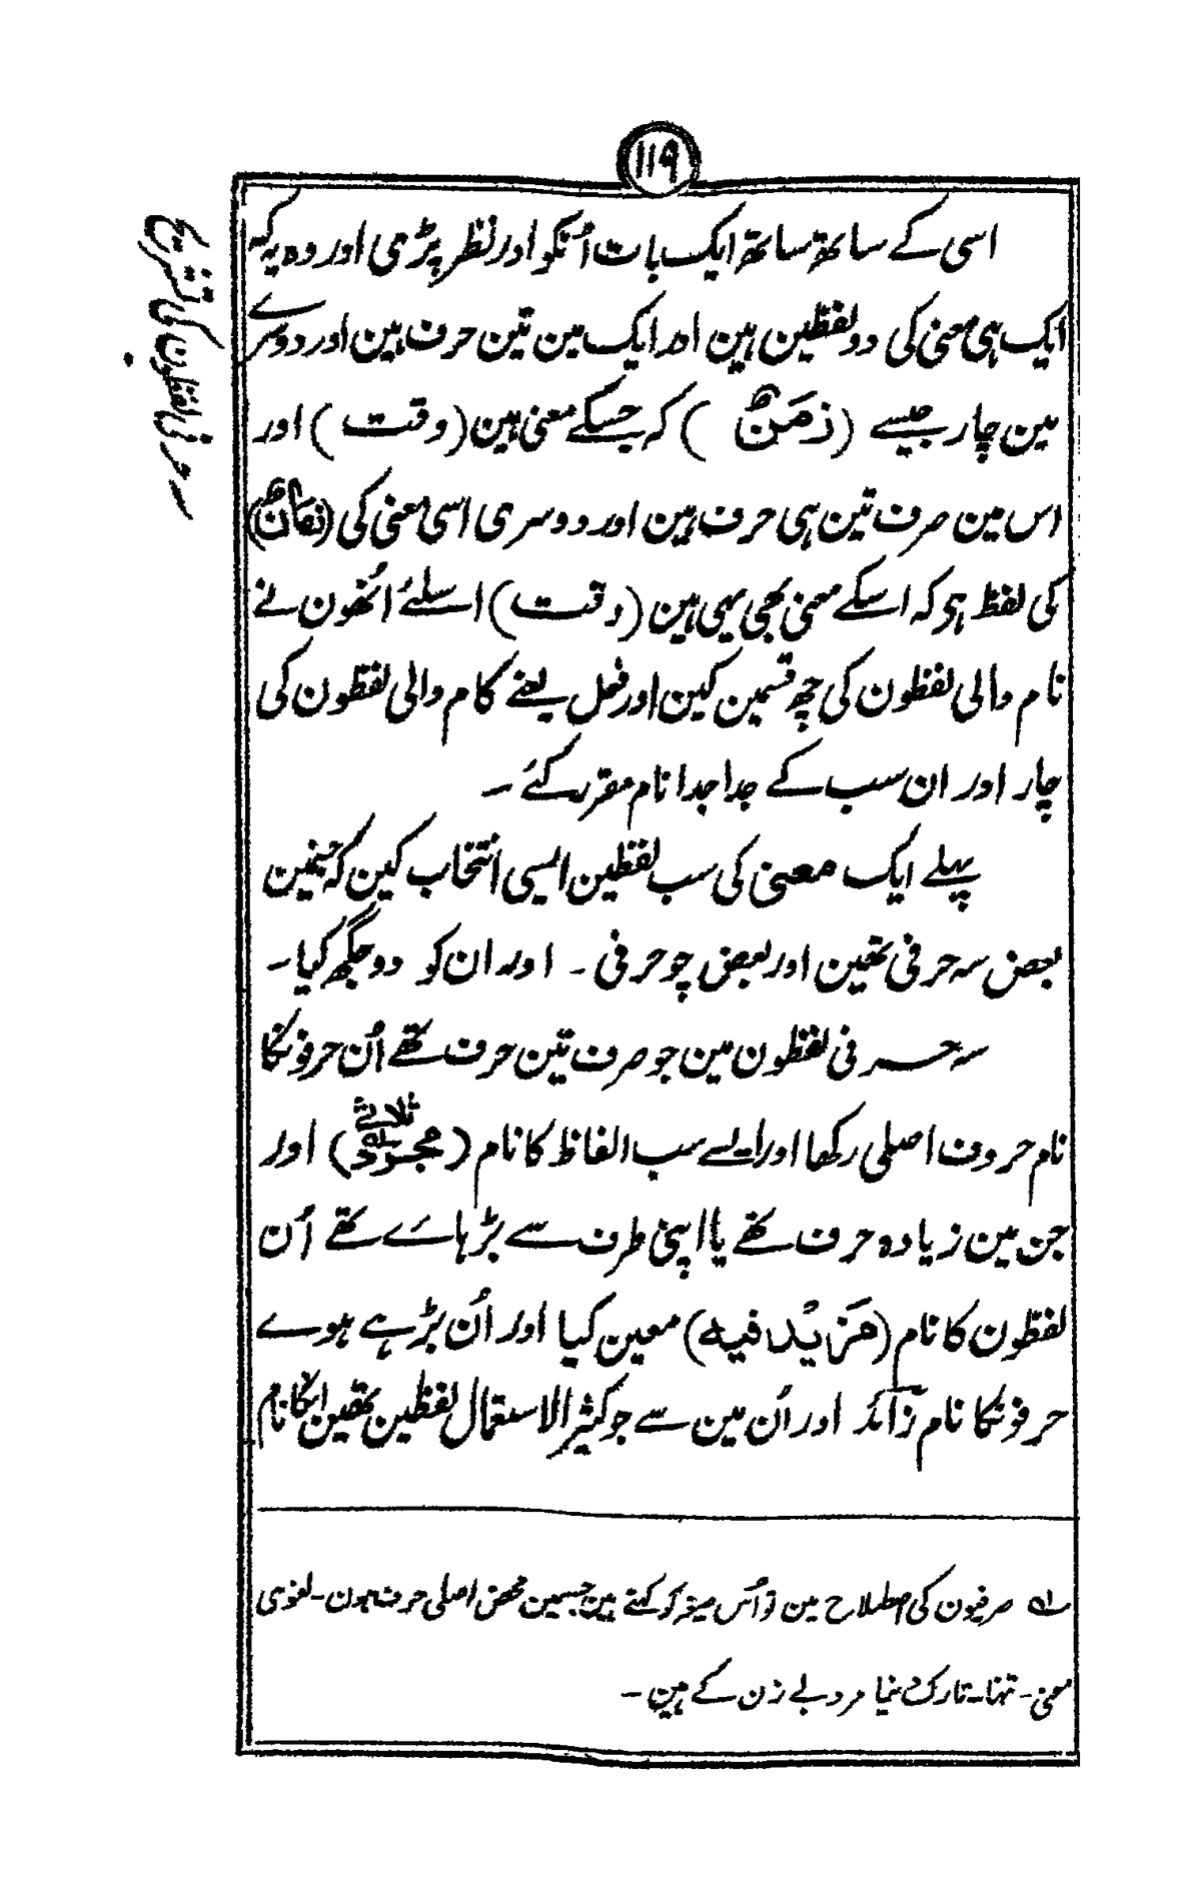 ۱۱۹
اسی کے ساتھ ساتھ ایک بات اُنکو اور نظر پڑی اور وہ یہ کہ
ایک ہی معنی کی دو لفظین ہین اور ایک مین تین حرف ہین اور دوسرے
مین چار جیسے (زَمَنٌ) کہ جسکے معنی ہین (وقت) اور
اس مین صرف تین ہی حرف ہین اور دوسری اسی معنی کی (زَمَانٌ)
کی لفظ ہو کہ اسکے معنی بھی یہی ہین (وقت) اسلئے اُنھون نے
نام والی لفظون کی چھ قسمین کین اور فعل یعنے کام والی لفظون کی
چار اور ان سب کے جدا جدا نام مقرر کئے ۔
پہلے ایک معنی کی سب لفظین ایسی انتخاب کین کہ جنمین
بعض سہ حرفی تھین اور بعض چوحرفی ۔ اور ان کو دو جگھ کیا ۔
سہ حرفی لفظون مین جو صرف تین حرف تھے اُن حرفونکا
نام حروف اصلی رکھا اور ایسے سب الفاظ کا نام (ثلاثے مجرد) اور
جن مین زیادہ حرف تھے یا اپنی طرف سے بڑہاے تھے اُن
لفظون کا نام (مَزِیْد فیه) معین کیا اور اُن بڑہے ہوے
حرفونکا نام زآئد اور اُن مین سے جو کثیر الاستعمال لفظین تھین انکا نام
لہ صرفیون کی اصطلاح مین تو اُس صیغہ کو کہتے ہین جسمین محض اصلی حرف ہون ۔ لغوی
معنی ۔ تنہا ۔ تارک دنیا مرد بے زن کے ہین ۔
سہ حرفی لفظون کی تشریح